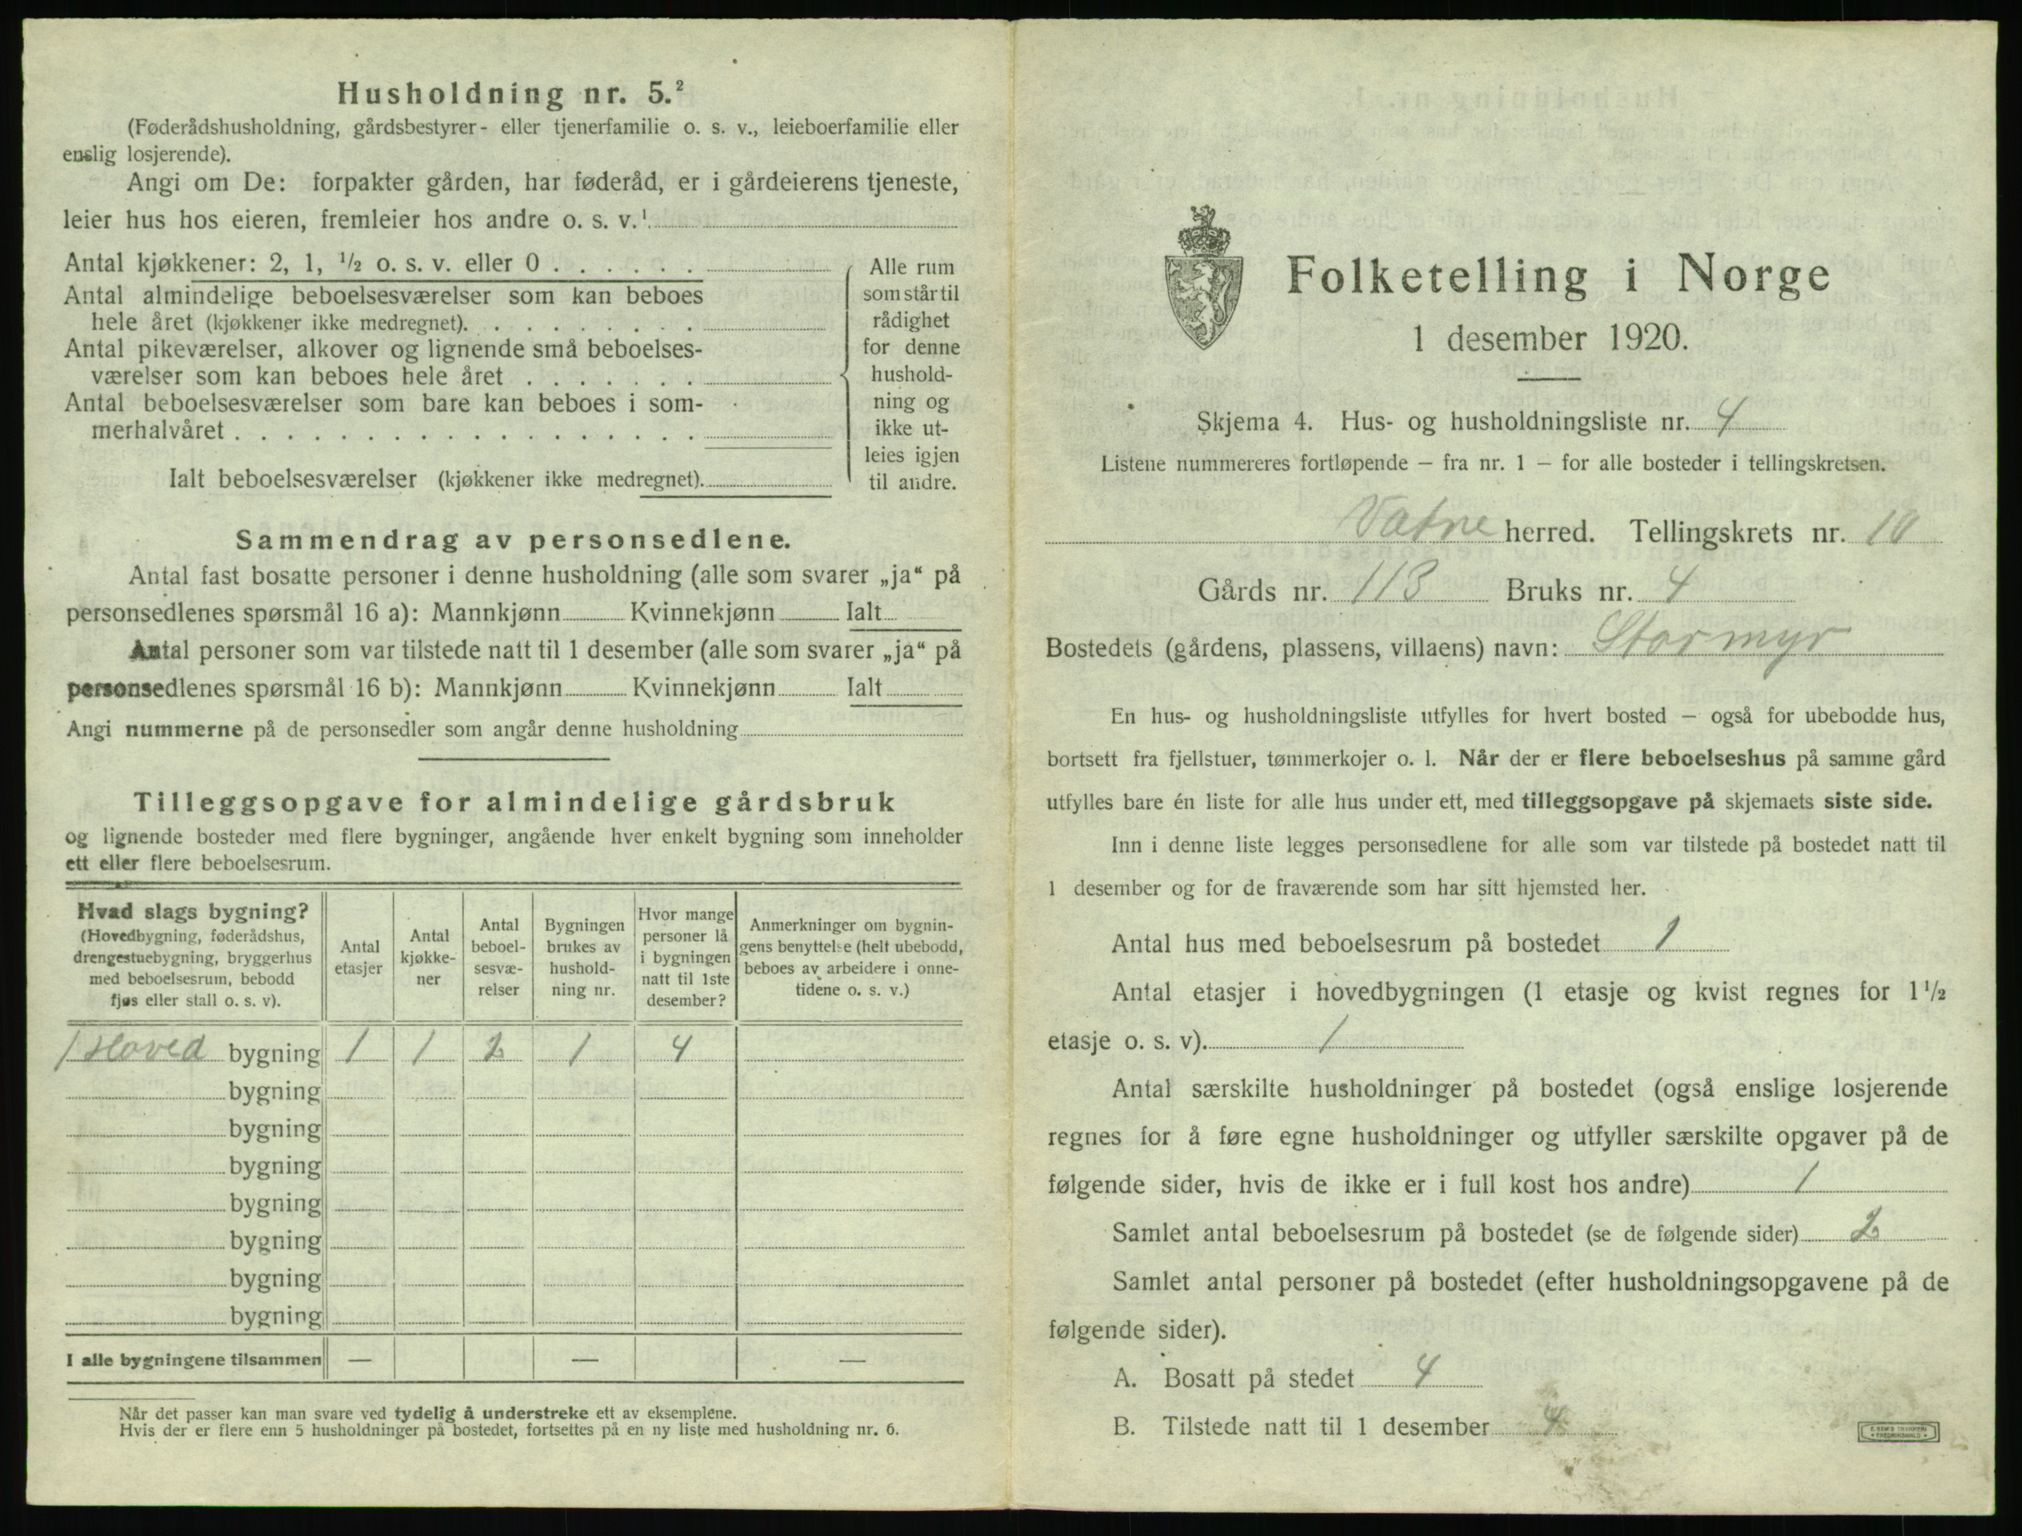 Husholdning nr. 5.²
(Føderådshusholdning, gårdsbestyrer- eller tjenerfamilie o. s. v., leieboerfamilie eller
enslig losjerende).
Angi om De: forpakter gården, har føderåd, er i gårdeierens tjeneste,
leier hus hos eieren, fremleier hos andre o. s. v.¹
Antal kjøkkener: 2, 1, ½ o. s. v. eller 0 . . . . . .
Antal almindelige beboelsesværelser som kan beboes
hele året (kjøkkener ikke medregnet). . . . . . . . .
Antal pikeværelser, alkover og lignende små beboelses-
værelser som kan beboes hele året . . . . . . .
Antal beboelsesværelser som bare kan beboes i som-
merhalvåret . . . . . . . . . . . . . . . . . .
Ialt beboelsesværelser (kjøkkener ikke medregnet).
Alle rum
som står til
rådighet
for denne
hushold-
ning og
ikke ut-
leies igjen
til andre.
Sammendrag av personsedlene.
Antal fast bosatte personer i denne husholdning (alle som svarer „ja“ på
personsedlenes spørsmål 16 a): Mannkjønn Kvinnekjønn Ialt
Antal personer som var tilstede natt til 1 desember (alle som svarer „ja“ på
personsedlenes spørsmål 16 b): Mannkjønn Kvinnekjønn Ialt
Angi nummerne på de personsedler som angår denne husholdning
Tilleggsopgave for almindelige gårdsbruk
og lignende bosteder med flere bygninger, angående hver enkelt bygning som inneholder
ett eller flere beboelsesrum.
Hvad slags bygning?
(Hovedbygning, føderådshus,
drengestuebygning, bryggerhus
med beboelsesrum, bebodd
fjøs eller stall o. s. v).
Antal
etasjer
Antal
kjøkke-
ner
Antal
beboel-
sesvæ-
relser
Bygningen
brukes av
hushold-
ning nr.
Hvor mange
personer lå
i bygningen
natt til 1ste
desember?
Anmerkninger om bygnin-
gens benyttelse (helt ubebodd,
beboes av arbeidere i onne-
tidene o. s. v.)
1 Hoved bygning 1 1 2 1 4
bygning
bygning
bygning
bygning
bygning
bygning
bygning
I alle bygningene tilsammen — — —
Når det passer kan man svare ved tydelig å understreke ett av eksemplene.
Hvis der er flere enn 5 husholdninger på bostedet, fortsettes på en ny liste med husholdning nr. 6.
Folketelling i Norge
1 desember 1920.
Skjema 4. Hus- og husholdningsliste nr. 4
Listene nummereres fortløpende – fra nr. 1 – for alle bosteder i tellingskretsen.
Vatne herred. Tellingskrets nr. 10
Gårds nr. 113 Bruks nr. 4
Bostedets (gårdens, plassens, villaens) navn: Stormyr
En hus- og husholdningsliste utfylles for hvert bosted – også for ubebodde hus,
bortsett fra fjellstuer, tømmerkojer o. l. Når der er flere beboelseshus på samme gård
utfylles bare én liste for alle hus under ett, med tilleggsopgave på skjemaets siste side.
Inn i denne liste legges personsedlene for alle som var tilstede på bostedet natt til
1 desember og for de fraværende som har sitt hjemsted her.
Antal hus med beboelsesrum på bostedet 1
Antal etasjer i hovedbygningen (1 etasje og kvist regnes for 1½
etasje o. s. v). 1
Antal særskilte husholdninger på bostedet (også enslige losjerende
regnes for å føre egne husholdninger og utfyller særskilte opgaver på de
følgende sider, hvis de ikke er i full kost hos andre) 1
Samlet antal beboelsesrum på bostedet (se de følgende sider) 2
Samlet antal personer på bostedet (efter husholdningsopgavene på de
følgende sider).
A. Bosatt på stedet 4
B. Tilstede natt til 1 desember 4